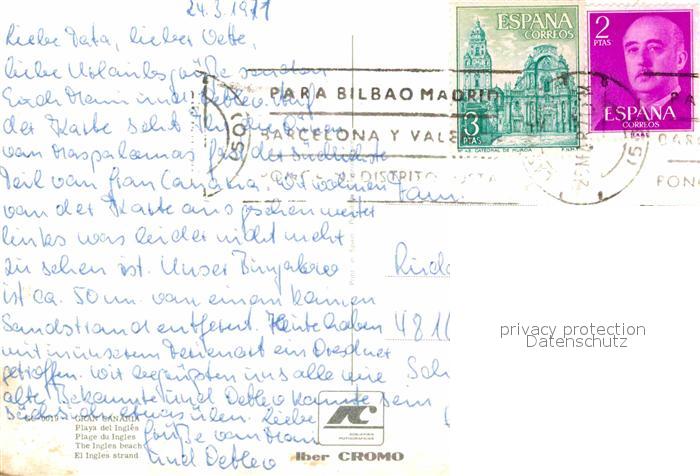 24.3.1971
Liebe Tata, lieber Vette,
liebe Urlaubsgrüße senden
Euch Mami und Detlev. Auf
der Karte seht Ihr die
von Maspalomas
Teil von Gran Canaria. Wir wohnen
von der Karte aus gesehen weiter
links was leider nicht mehr
zu sehen ist. Unser Bungalow
ist ca. 50 m. von einem kleinen
Sandstrand entfernt. Heute haben
wir in unserem Ferienort ein Dresdner
getroffen. Wir begrüßten uns alle wie
alte Bekannte und Detlev konnte sein
Sächsisch etwas üben. Liebe
Grüße von Mami
und Detlev
Fam.
481
Sch
ESPAÑA
CORREOS
3
PTAS
CATEDRAL DE MURCIA
F.N.M.T.
2
PTAS
ESPAÑA
CORREOS
PARA BILBAO MADRID
BARCELONA Y VALE
DISTRITO
BAR
PONG
GRAN CANARIA
Playa del Inglés
Plage du Ingles
The Ingles beach
El Ingles strand
Iber CROMO
privacy protection
Datenschutz